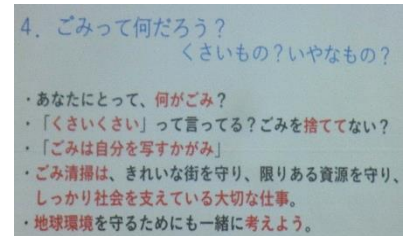 4．ごみって何だろう？
くさいもの？いやなもの？
・あなたにとって、何がごみ？
・「くさいくさい」って言ってる？ごみを捨ててない？
・「ごみは自分を写すかがみ」
・ごみ清掃は、きれいな街を守り、限りある資源を守り、
しっかり社会を支えている大切な仕事。
・地球環境を守るためにも一緒に考えよう。